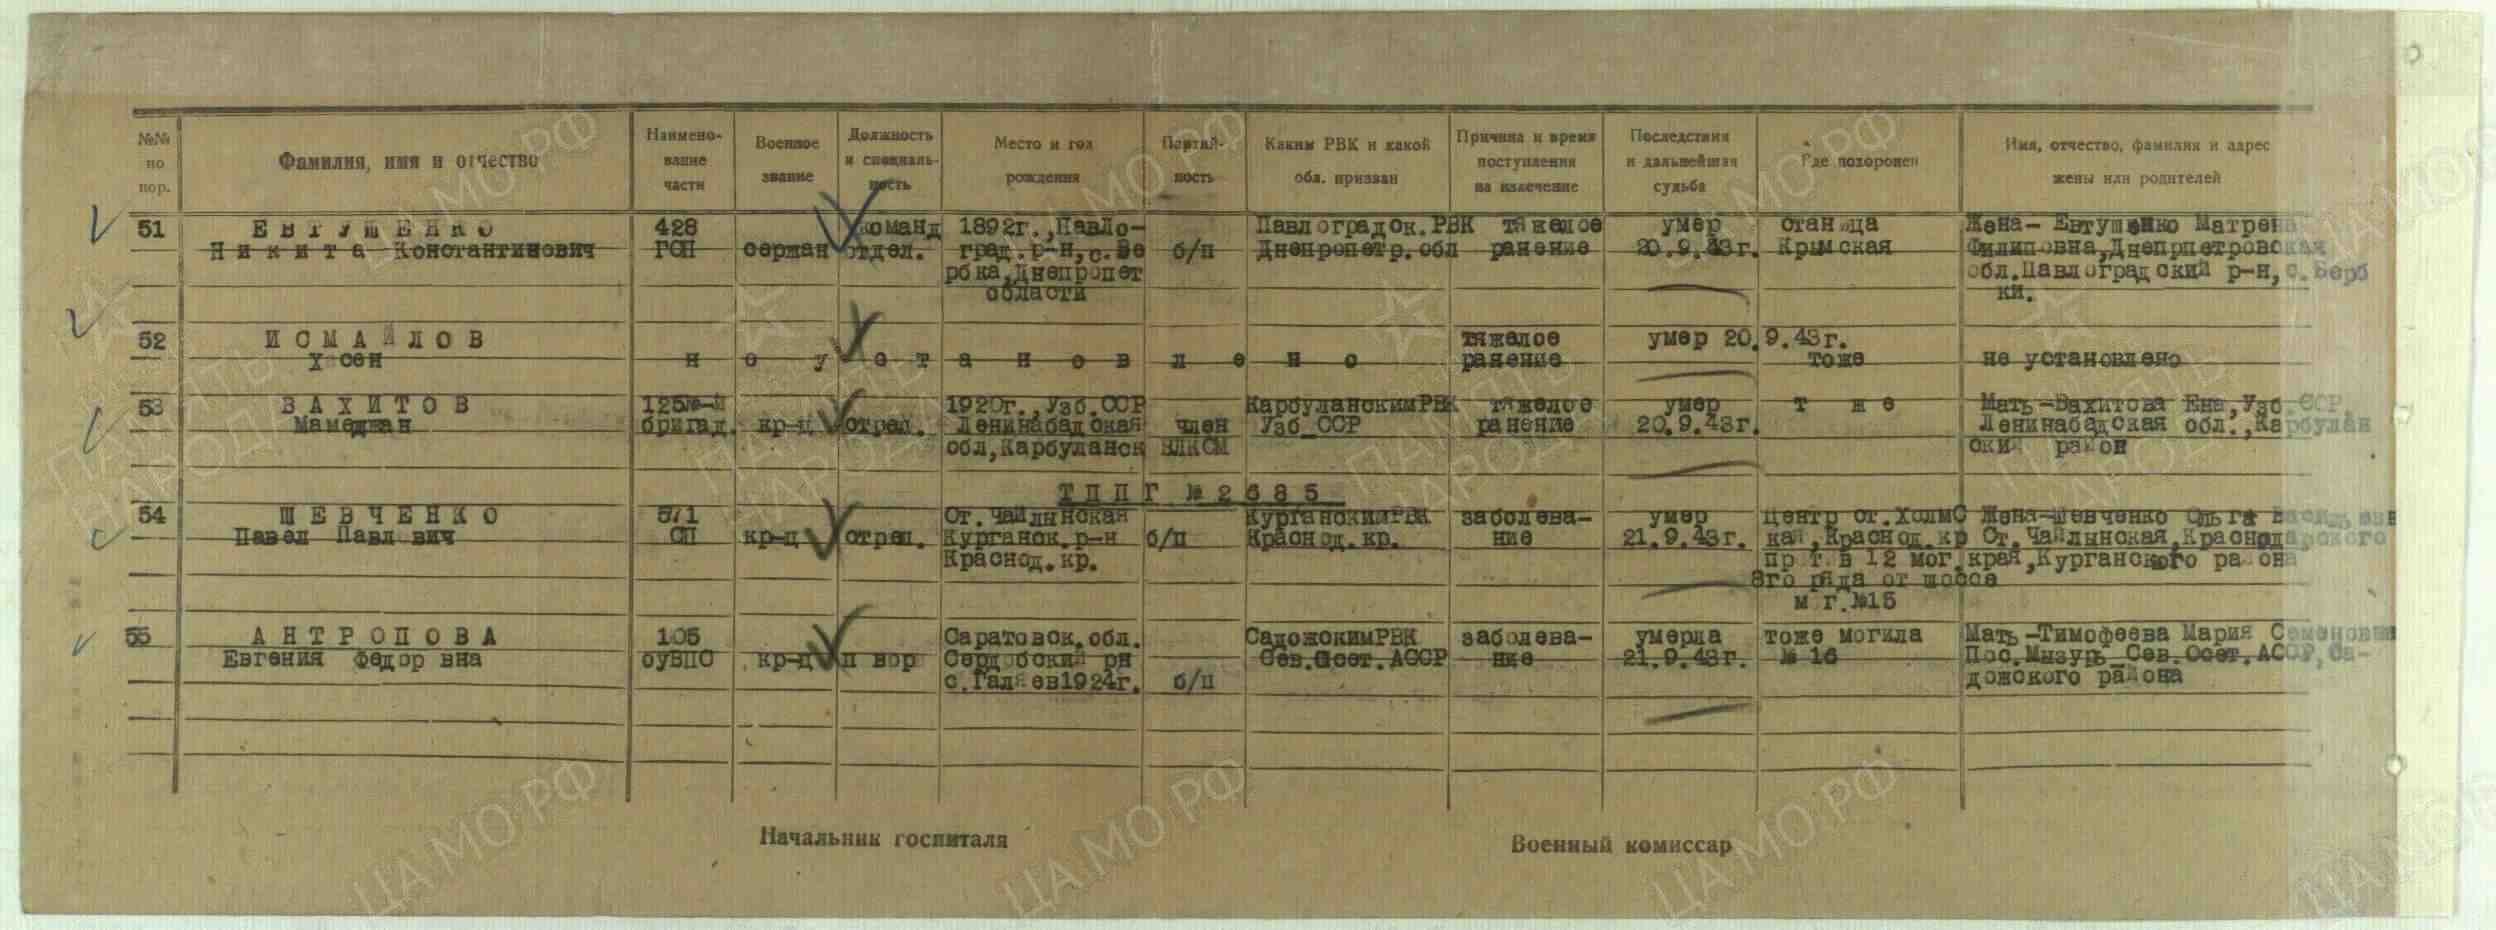 №№ по пор.
Фамилия, имя и отчество
Наимено-вание части
Военное звание
Должность и специаль-ность
Место и год рождения
Партий-ность
Каким РВК и какой обл. призван
Причина и время поступления на излечение
Последствия и дальнейшая судьба
Где похоронен
Имя, отчество, фамилия и адрес жены или родителей
51 ЕВТУШЕНКО 428 команд 1892г.,Павло- Павлоградск.РВК тяжелое умер станица Жена- Евтушенко Матрена
Никита Константинович ГСП сержан отдел. град.р-н,с.Ве б/п Днепропетр.обл ранение 20.9.43г. Крымская Филиповна,Днепрпетровская
рбка,Днепропет обл.Павлоградский р-н,с.Верб
области ки.
52 ИСМАЙЛОВ тяжелое умер 20.9.43г.
Хасен н о у с т а н о в л е н о ранение тоже не установлено
53 ВАХИТОВ 125м-й 1920г.,Узб.ССР КарбуланскимРВК тяжелое умер т ж е Мать-Вахитова Ена,Узб.ССР
Мамеджан бригад. кр-ц стрел. Ленинабадская член Узб ССР ранение 20.9.43г. Ленинабадская обл.,Карбулан
обл,Карбуланск ВЛКСМ ский район
ТППГ №2685
54 ШЕВЧЕНКО 571 Ст.Чайлынская КурганскимРВК заболева- умер Центр ст.Холмс Жена-Шевченко Ольга Васильевн
Павел Павлович СП кр-ц стрел. Курганск.р-н б/п Краснод.кр. ние 21.9.43г. кай,Краснод.кр Ст.Чайлынская,Краснодарского
Краснод.кр. пр т.в 12 мог. края,Курганского района
8го ряда от шоссе
м г.№15
55 АНТРОПОВА 105 Саратовск.обл. СадожскимРВК заболева- умерла тоже могила Мать-Тимофеева Мария Семеновна
Евгения Федор вна оуВПС кр-ц п вор Сердобский рн Сев.Осет.АССР ние 21.9.43г. № 16 Пос.Мизурь Сев.Осет.АССР,Са-
с.Галяев1924г. б/п донского района
Начальник госпиталя Военный комиссар
ПАМЯТЬ НАРОДА
ЦА МО РФ